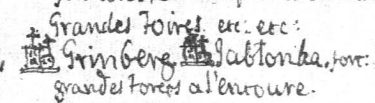 Grandes Foires etc. etc:
Grinberg Jabłonka, tort:
grandes forets a l'entoure.